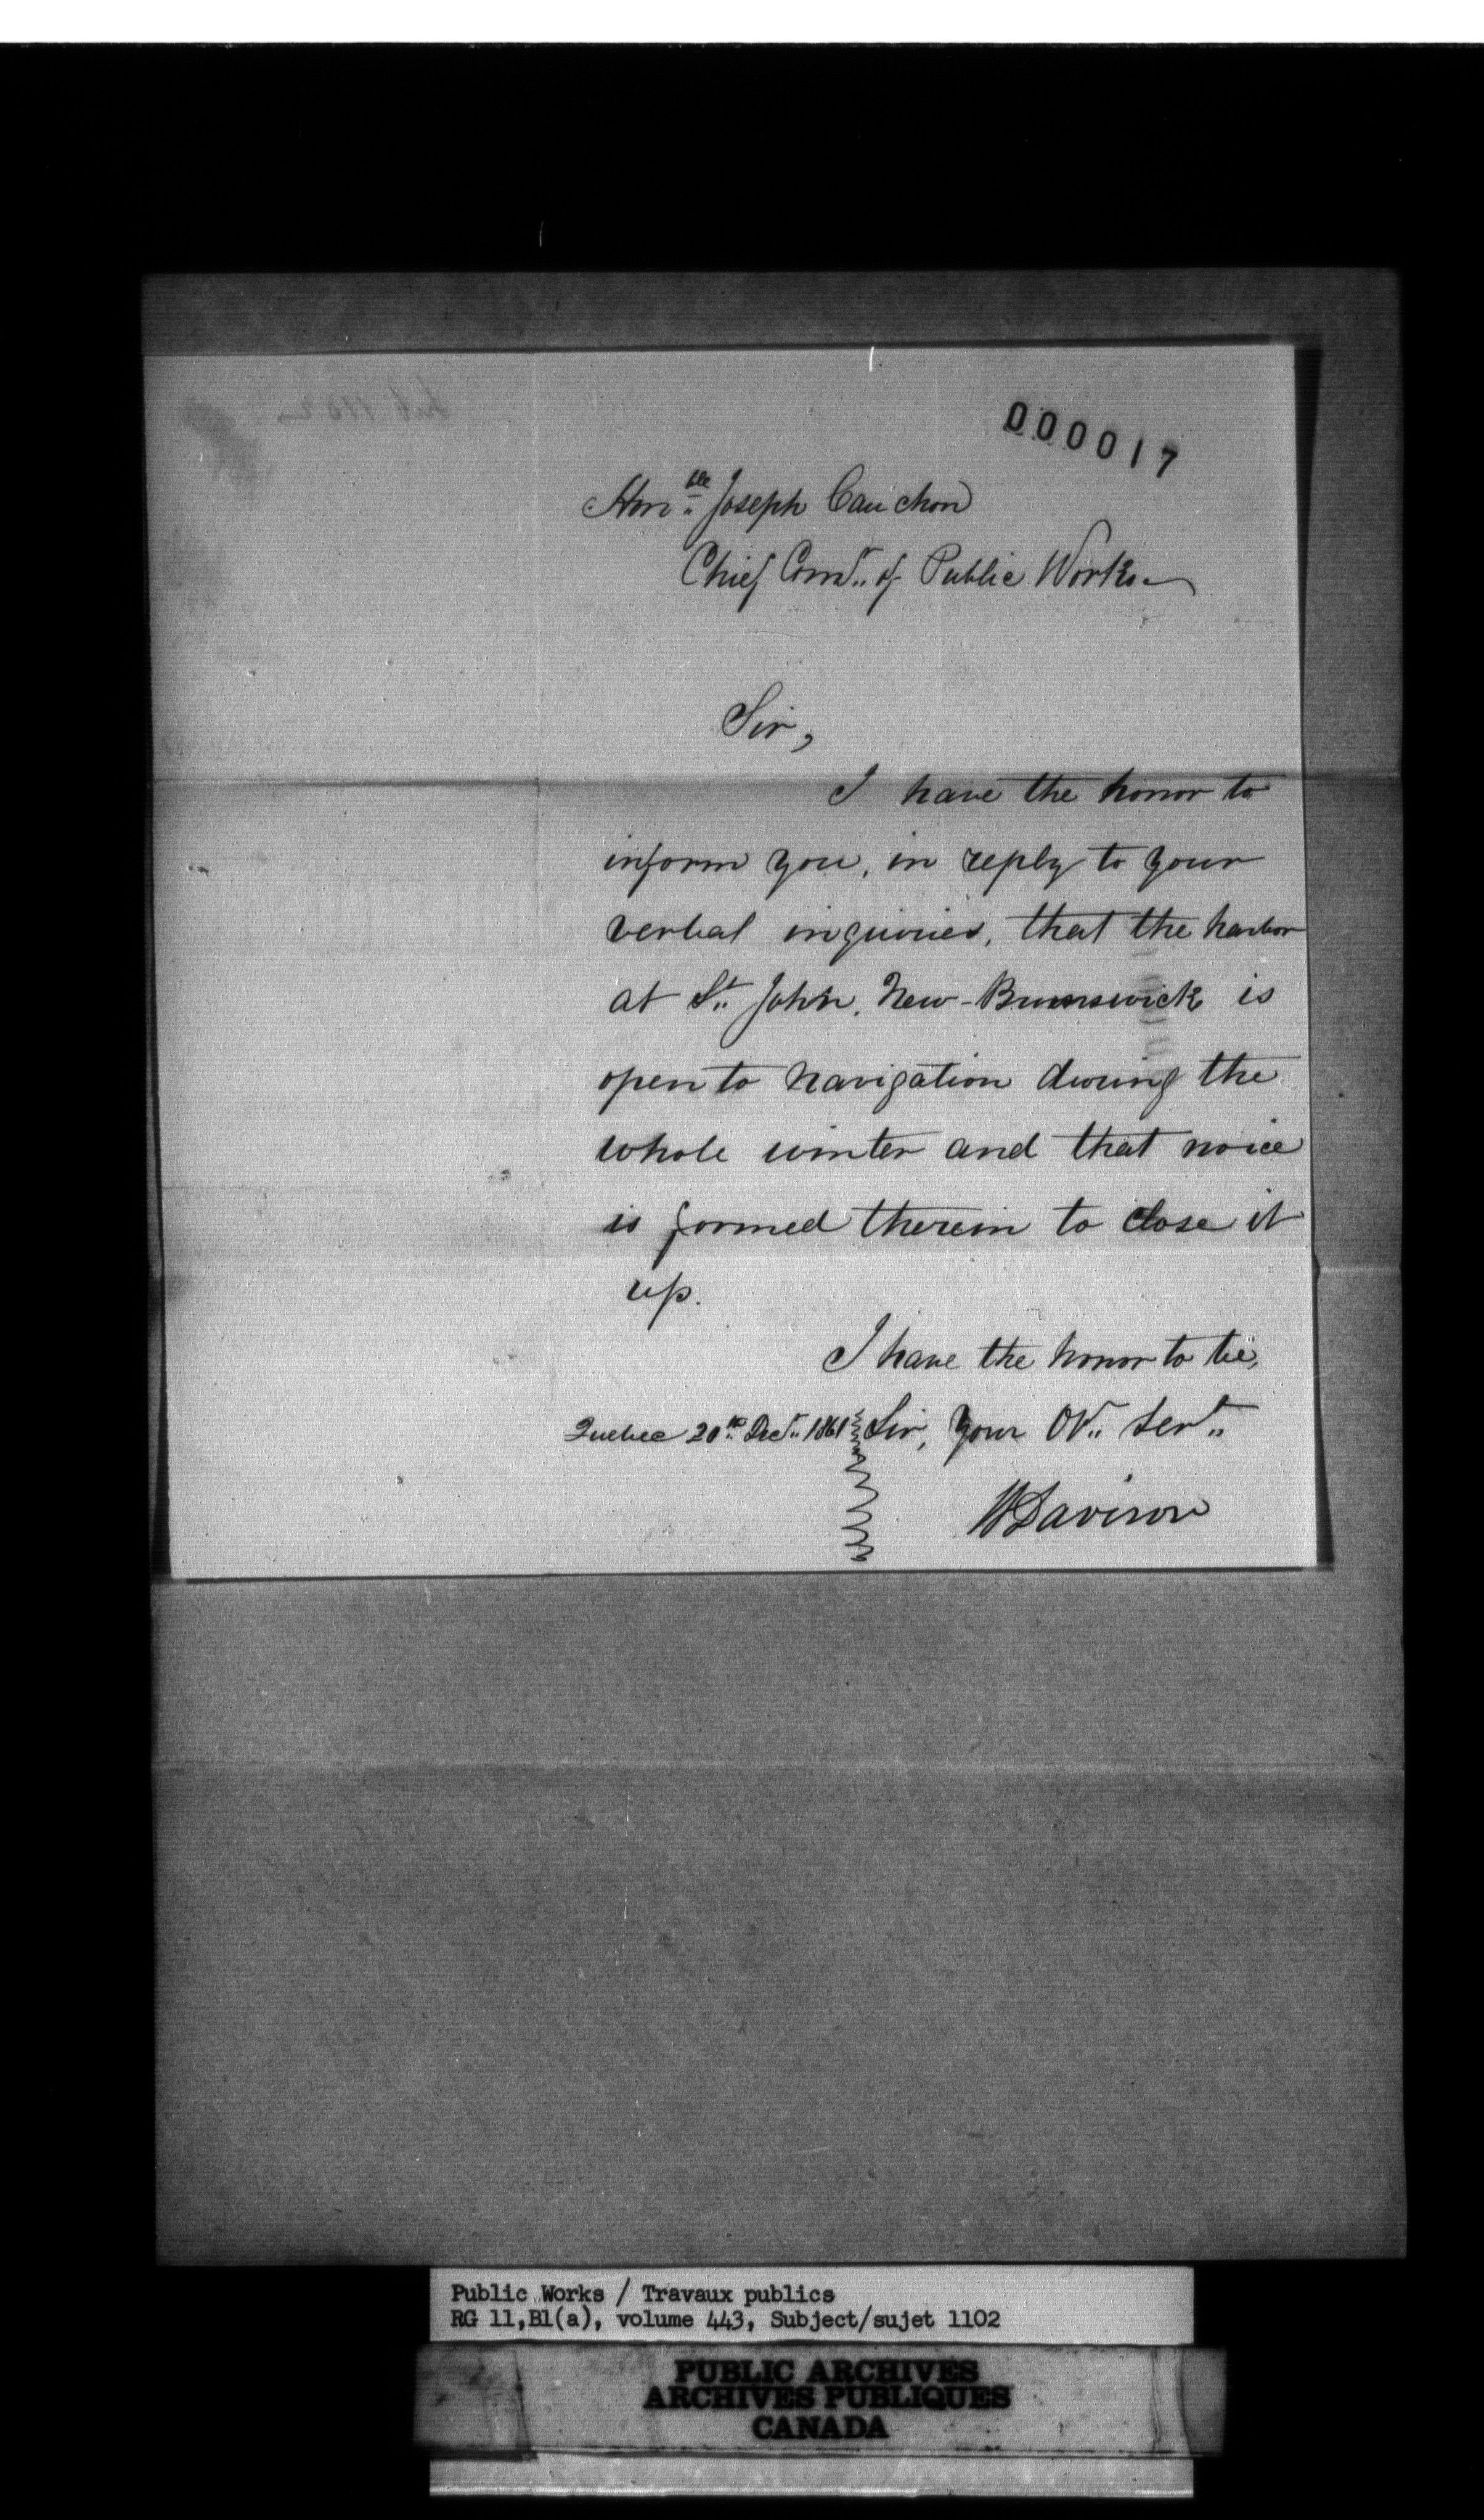 000017
Honble Joseph Cauchon
Chief Comr. of Public Works
Sir,
I have the honor to
inform you, in reply to your
verbal inquiries, that the harbor
at St. John, New-Brunswick is
open to navigation during the
whole winter and that no ice
is formed therein to close it
up.
I have the honor to be,
Quebec 20th Decr. 1861 Sir, Your Ob. Servt.
W Davison
Public Works / Travaux publics
RG 11,B1(a), volume 443, Subject/sujet 1102
PUBLIC ARCHIVES
ARCHIVES PUBLIQUES
CANADA